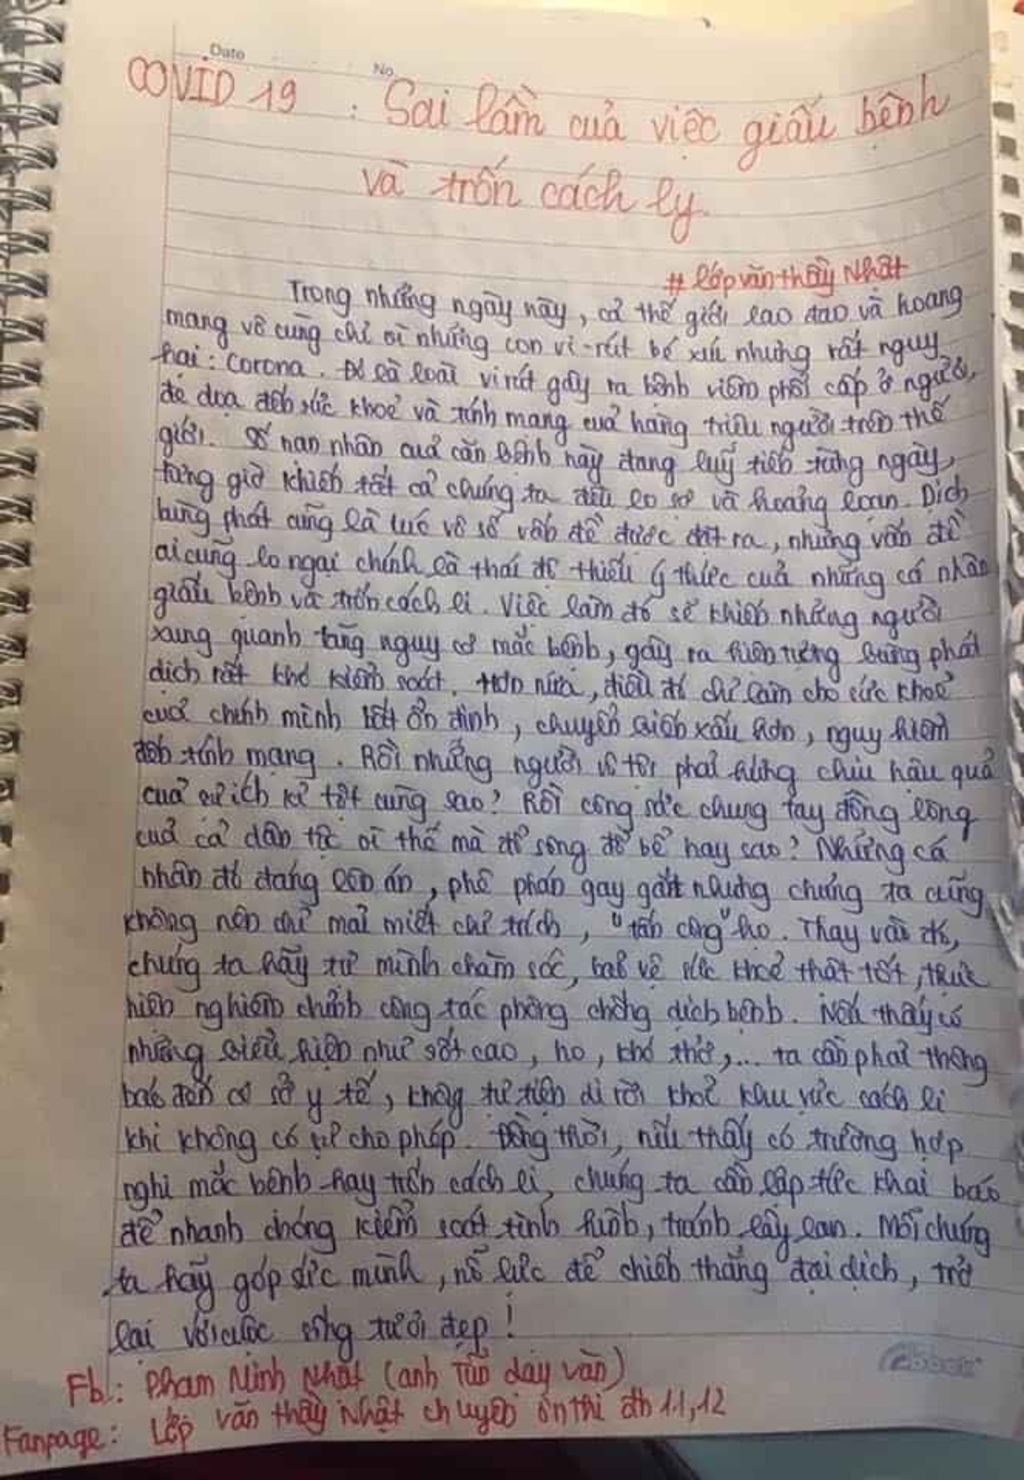 Date
No
COVID 19 : Sai lầm của việc giấu bệnh
và trốn cách ly.
# lớp văn thầy Nhật
Trong những ngày này, cả thế giới lao đao và hoang
mang vô cùng chỉ vì những con vi-rút bé xíu nhưng rất nguy
hại: Corona. Đó là loài virút gây ra bệnh viêm phổi cấp ở người,
đe dọa đến sức khoẻ và tính mạng của hàng triệu người trên thế
giới. Số nạn nhân của căn bệnh này đang luỹ tiến từng ngày,
từng giờ khiến tất cả chúng ta đều lo sợ và hoảng loạn. Dịch
bùng phát cũng là lúc vô số vấn đề được đặt ra, nhưng vấn đề
ai cũng lo ngại chính là thái độ thiếu ý thức của những cá nhân
giấu bệnh và trốn cách li. Việc làm đó sẽ khiến những người
xung quanh tăng nguy cơ mắc bệnh, gây ra hiện tượng bùng phát
dịch rất khó kiểm soát. Hơn nữa, điều đó chỉ làm cho sức khoẻ
của chính mình bất ổn định, chuyển biến xấu hơn, nguy hiểm
đến tính mạng. Rồi những người vô tội phải hứng chịu hậu quả
của sự ích kỉ tột cùng sao? Rồi công sức chung tay đồng lòng
của cả dân tộc vì thế mà đổ sông đổ bể hay sao? Những cá
nhân đó đáng lên án, phê phán gay gắt nhưng chúng ta cũng
không nên chỉ mải miết chỉ trích, "tấn công" họ. Thay vào đó,
chúng ta hãy tự mình chăm sóc, bảo vệ sức khoẻ thật tốt, thực
hiện nghiêm chỉnh công tác phòng chống dịch bệnh. Nếu thấy có
những biểu hiện như sốt cao, ho, khó thở,... ta cần phải thông
báo đến cơ sở y tế, không tự tiện di rời khỏi khu vực cách li
khi không có sự cho phép. Đồng thời, nếu thấy có trường hợp
nghi mắc bệnh hay trốn cách li, chúng ta cần lập tức khai báo
để nhanh chóng kiểm soát tình hình, tránh lây lan. Mỗi chúng
ta hãy góp sức mình, nỗ lực để chiến thắng đại dịch, trở
lại với cuộc sống tươi đẹp!
Fb: Phạm Minh Nhật (anh Tũn dạy văn)
Fanpage: Lớp văn thầy Nhật chuyên ôn thi đh 11,12